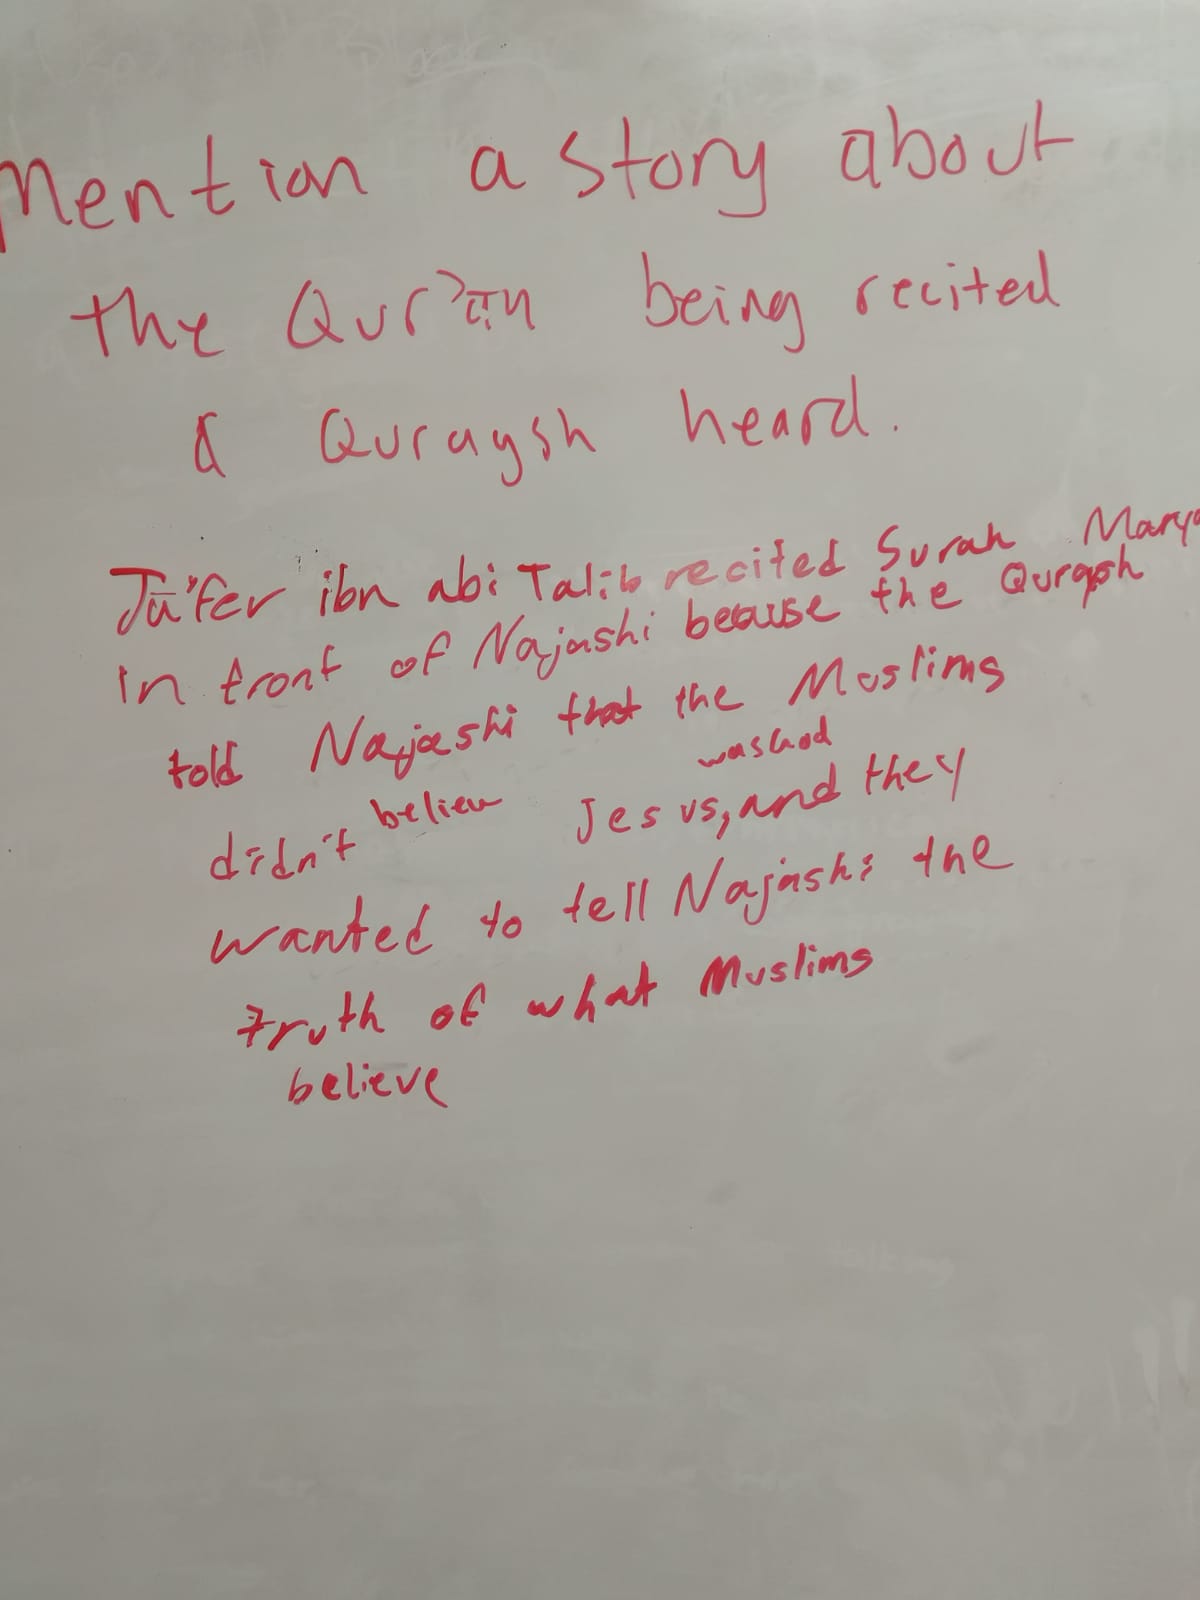 Mention a story about
the Qur'an being recited
& Quraysh heard.
Ja'fer ibn abi Talib recited Surah Marya
in front of Najashi because the Quraysh
told Najashi that the Muslims
didn't believe Jesus, and they
wanted to tell Najashi the
truth of what Muslims
believe